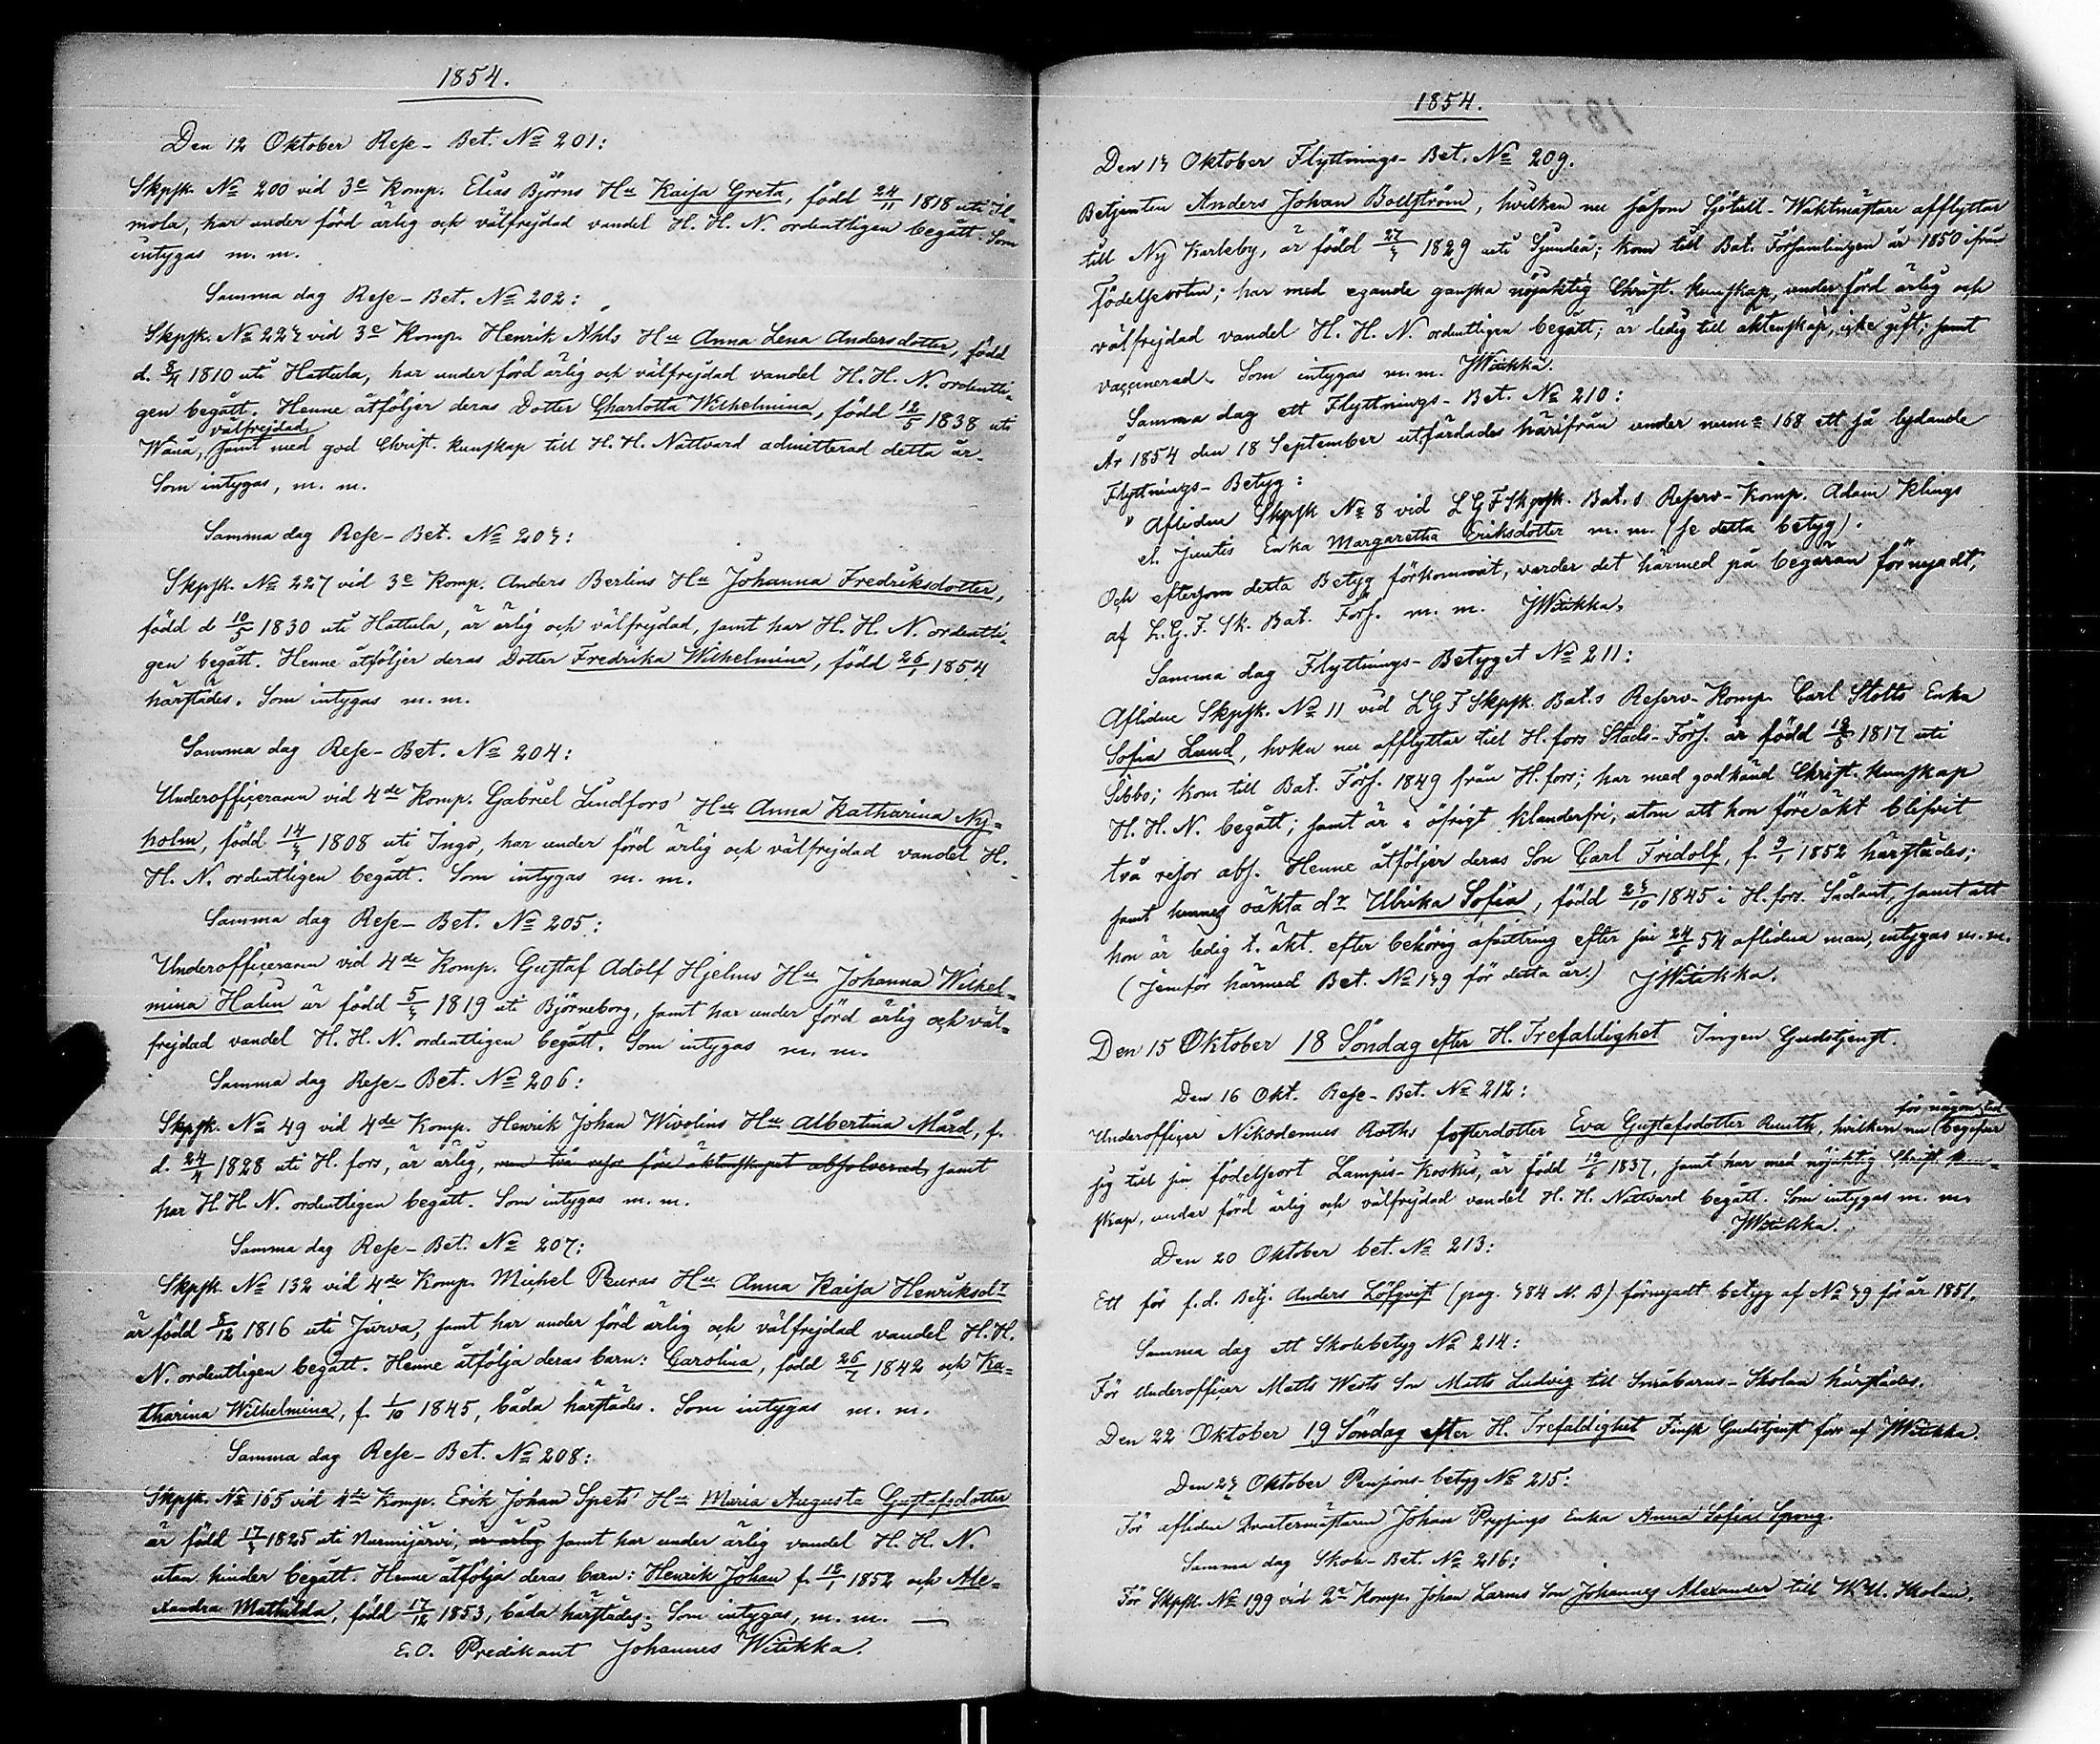 1854.
Den 12 Oktober Rese-Bet. No 201:
Skpsk. No 200 vid 3e Komp. Elias Björns Hu Kaisa Greta, född 24/11 1818 uti Il-
mola, har under förd ärlig och välfrejdad vandel H. H. N. ordentligen begått. Som
intygas m. m.
Samma dag Rese-Bet. No 202:
Skpsk. No 223 vid 3e Komp. Henrik Åhls Hu Anna Lena Andersdotter, född
d. 8/4 1810 uti Hattula, har under förd ärlig och välfrejdad vandel H. H. N. ordentli-
gen begått. Henne åtföljer deras Dotter Charlotta Wilhelmina, född 12/5 1838 uti
välfrejdad
Wånå, samt med god Christ. kunskap till H. H. Nattvard admitterad detta år.
Som intygas, m. m.
Samma dag Rese-Bet. No 203:
Skpsk. No 227 vid 3e Komp. Anders Berlins Hu Johanna Fredriksdotter,
född d 10/5 1830 uti Hattula, är ärlig och välfrejdad, samt har H. H. N. ordentli-
gen begått. Henne åtföljer deras Dotter Fredrika Wilhelmina, född 26/1 1854
härstädes. Som intygas m. m.
Samma dag Rese-Bet. No 204:
Underofficeraren vid 4de Komp. Gabriel Lindfors' Hu Anna Katharina Ny-
holm, född 14/3 1808 uti Ingo, har under förd ärlig och välfrejdad vandel H.
H. N. ordentligen begått. Som intygas m. m.
Samma dag Rese-Bet. No 205:
Underofficeraren vid 4de Komp. Gustaf Adolf Hjelms Hu Johanna Wilhel-
mina Halin är född 5/3 1819 uti Björneborg, samt har under förd ärlig och väl-
frejdad vandel H. H. N. ordentligen begått. Som intygas m. m.
Samma dag Rese-Bet. No 206:
Skpsk. No 49 vid 4de Komp. Henrik Johan Wivolins Hu Albertina Mård, f.
d. 24/4 1828 uti H. fors, är ärlig, men två resor före äktenskapet absolverad, samt
har H. H. N. ordentligen begått. Som intygas m. m.
Samma dag Rese-Bet. No 207:
Skpsk. No 132 vid 4de Komp. Michel Peuras Hu Anna Kaisa Henriksdr
är född 8/12 1816 uti Jurva, samt har under förd ärlig och välfrejdad vandel H. H.
N. ordentligen begått. Henne åtfölja deras barn: Carolina, född 26/7 1842 och Ka-
tharina Wilhelmina, f. 1/10 1845, båda härstädes. Som intygas m. m.
Samma dag Rese-Bet. No 208:
Skpsk. No 165 vid 4de Komp. Erik Johan Spets' Hu Maria Augusta Gustafsdotter
är född 17/3 1825 uti Nurmijärvi, är ärlig samt har under ärlig vandel H. H. N.
utan hinder begått. Henne åtfölja deras barn: Henrik Johan f. 12/1 1852 och Ale-
xandra Mathilda, född 17/12 1853, båda härstädes; Som intygas, m. m.
E. O. Predikant Johannes Witikka.
1854.
Den 13 Oktober Flyttnings-Bet. No 209.
Betjenten Anders Johan Bollström, hvilken nu såsom Sjötull-Waktmästare afflyttar
till Ny Karleby, är född 27/3 1829 uti Sjundeå; kom till Bat. Församlingen år 1850 ifrån
födelseorten; har med egande ganska nöjaktig Christ. kunskap, under förd ärlig och
välfrejdad vandel H. H. N. ordentligen begått; är ledig till äktenskap, icke gift; samt
vaccinerad. Som intygas m. m. JWitikka.
Samma dag ett Flyttnings-Bet. No 210:
År 1854 den 18 September utfärdades härifrån under numo 168 ett så lydande
Flyttnings-Betyg:
"Aflidne Skpsk No 8 vid L G F Skpsk. Bat.s Reserv-Komp. Adam Klings
el. Juntis Enka Margaretha Eriksdotter m. m. (se detta betyg).
Och eftersom detta Betyg förkommit, varder det härmed på begäran förnyadt,
af L. G. F. Sk. Bat. Förs. m. m. JWitikka.
Samma dag Flyttnings-Betyget No 211:
Aflidne Skpsk. No 11 vid L G F Skpsk. Bat.s Reserv-Komp. Carl Stolts Enka
Sofia Lund, hvken nu afflyttar till H.fors Stads-Förs. är född 19/8 1817 uti
Sibbo; kom till Bat. Förs. 1849 från H.fors; har med godkänd Christ. kunskap
H. H. N. begått; samt är i öfrigt klanderfri, utom att hon före äkt blifvit
två resor abs. Henne åtföljer deras Son Carl Fridolf, f. 9/1 1852 härstädes;
samt hennes oäkta dr Ulrika Sofia, född 23/10 1845 i H.fors. Sådant, samt att
hon är ledig t. äkt. efter behörig afvittring efter sin 24/5 54 aflidna man, intygas m. m.
(Jemför härmed Bet. No 139 för detta år.) JWitikka.
Den 15 Oktober 18 Söndag efter H. Trefaldighet Ingen Gudstjenst.
Den 16 Okt. Rese-Bet. No 212:
för någon tid
Underofficer Nikodemus Roths fosterdotter Eva Gustafsdotter Ruuth, hvilken nu begifver
sig till sin födelseort Lampis-Koskis, är född 19/6 1837, samt har med nöjaktig Christ. kun-
skap, under förd ärlig och välfrejdad vandel H. H. Nattvard begått. Som intygas m. m.
JWitikka.
Den 20 Oktober bet. No 213:
Ett för f. d. Betj. Anders Löfqvist (pag. 384 N. B) förnyadt betyg af No 39 för år 1851.
Samma dag ett Skolebetyg No 214:
För Underofficer Matts Wests Son Matts Ludvig till Småbarns-Skolan härstädes.
Den 22 Oktober 19 Söndag efter H. Trefaldighet Finsk Gudstjenst förr. af JWitikka.
Den 23 Oktober Pensions-betyg No 215:
För aflidne Qvartermästaren Johan Pryssings Enka Anna Sofia Spong.
Samma dag Skole-Bet. No 216:
För Skpsk. No 199 vid 2a Komp. Johan Larms Son Johannes Alexander till W. U. Skolan.